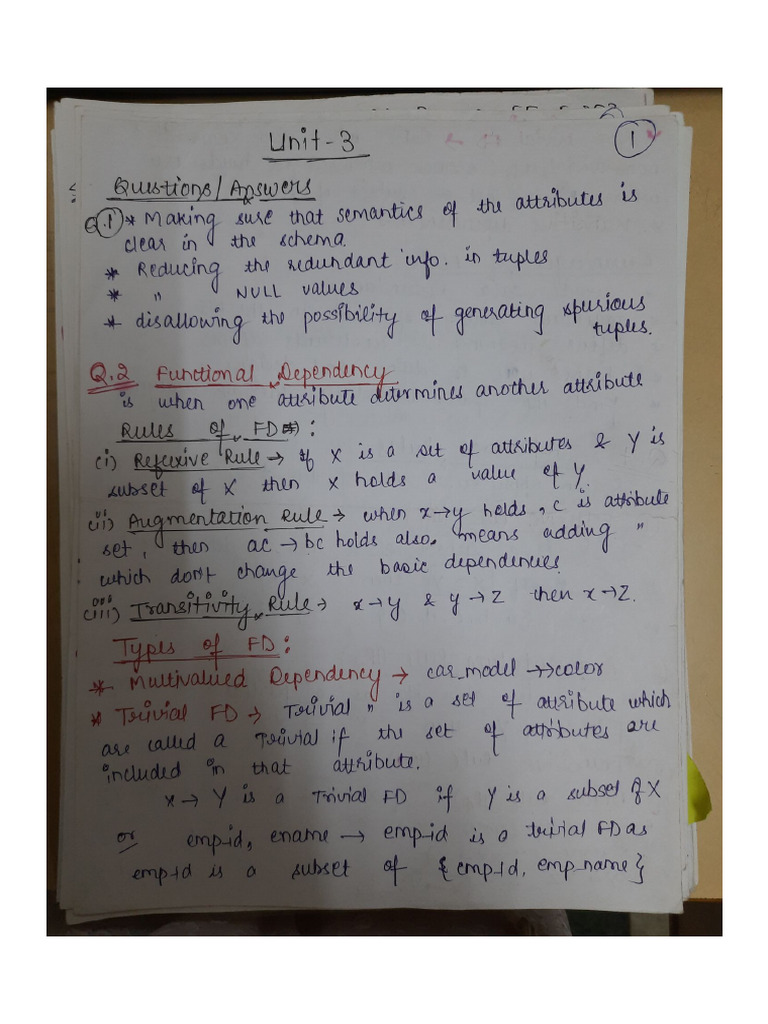 Unit-3
1
Questions/Answers
Q.1 * Making sure that semantics of the attributes is
clear in the schema.
* Reducing the redundant info. in tuples
* " NULL values
* disallowing the possibility of generating spurious
tuples.
Q.2 Functional Dependency
is when one attribute determines another attribute
Rules of FD :
(i) Refexive Rule → If X is a set of attributes & Y is
subset of X then X holds a value of Y.
(ii) Augmentation Rule → when x→y holds, c is attribute
set, then ac → bc holds also. means adding "
which don't change the basic dependences.
(iii) Transitivity Rule → x→y & y→Z then x→Z.
Types of FD :
* Multivalued Dependency → car_model →→color
* Trivial FD → Trivial " is a set of attribute which
are called a Trivial if the set of attributes are
included in that attribute.
X → Y is a Trivial FD if Y is a subset of X
or emp_id, ename → emp_id is a trivial FD as
emp_Id is a subset of {emp_Id, emp_name}